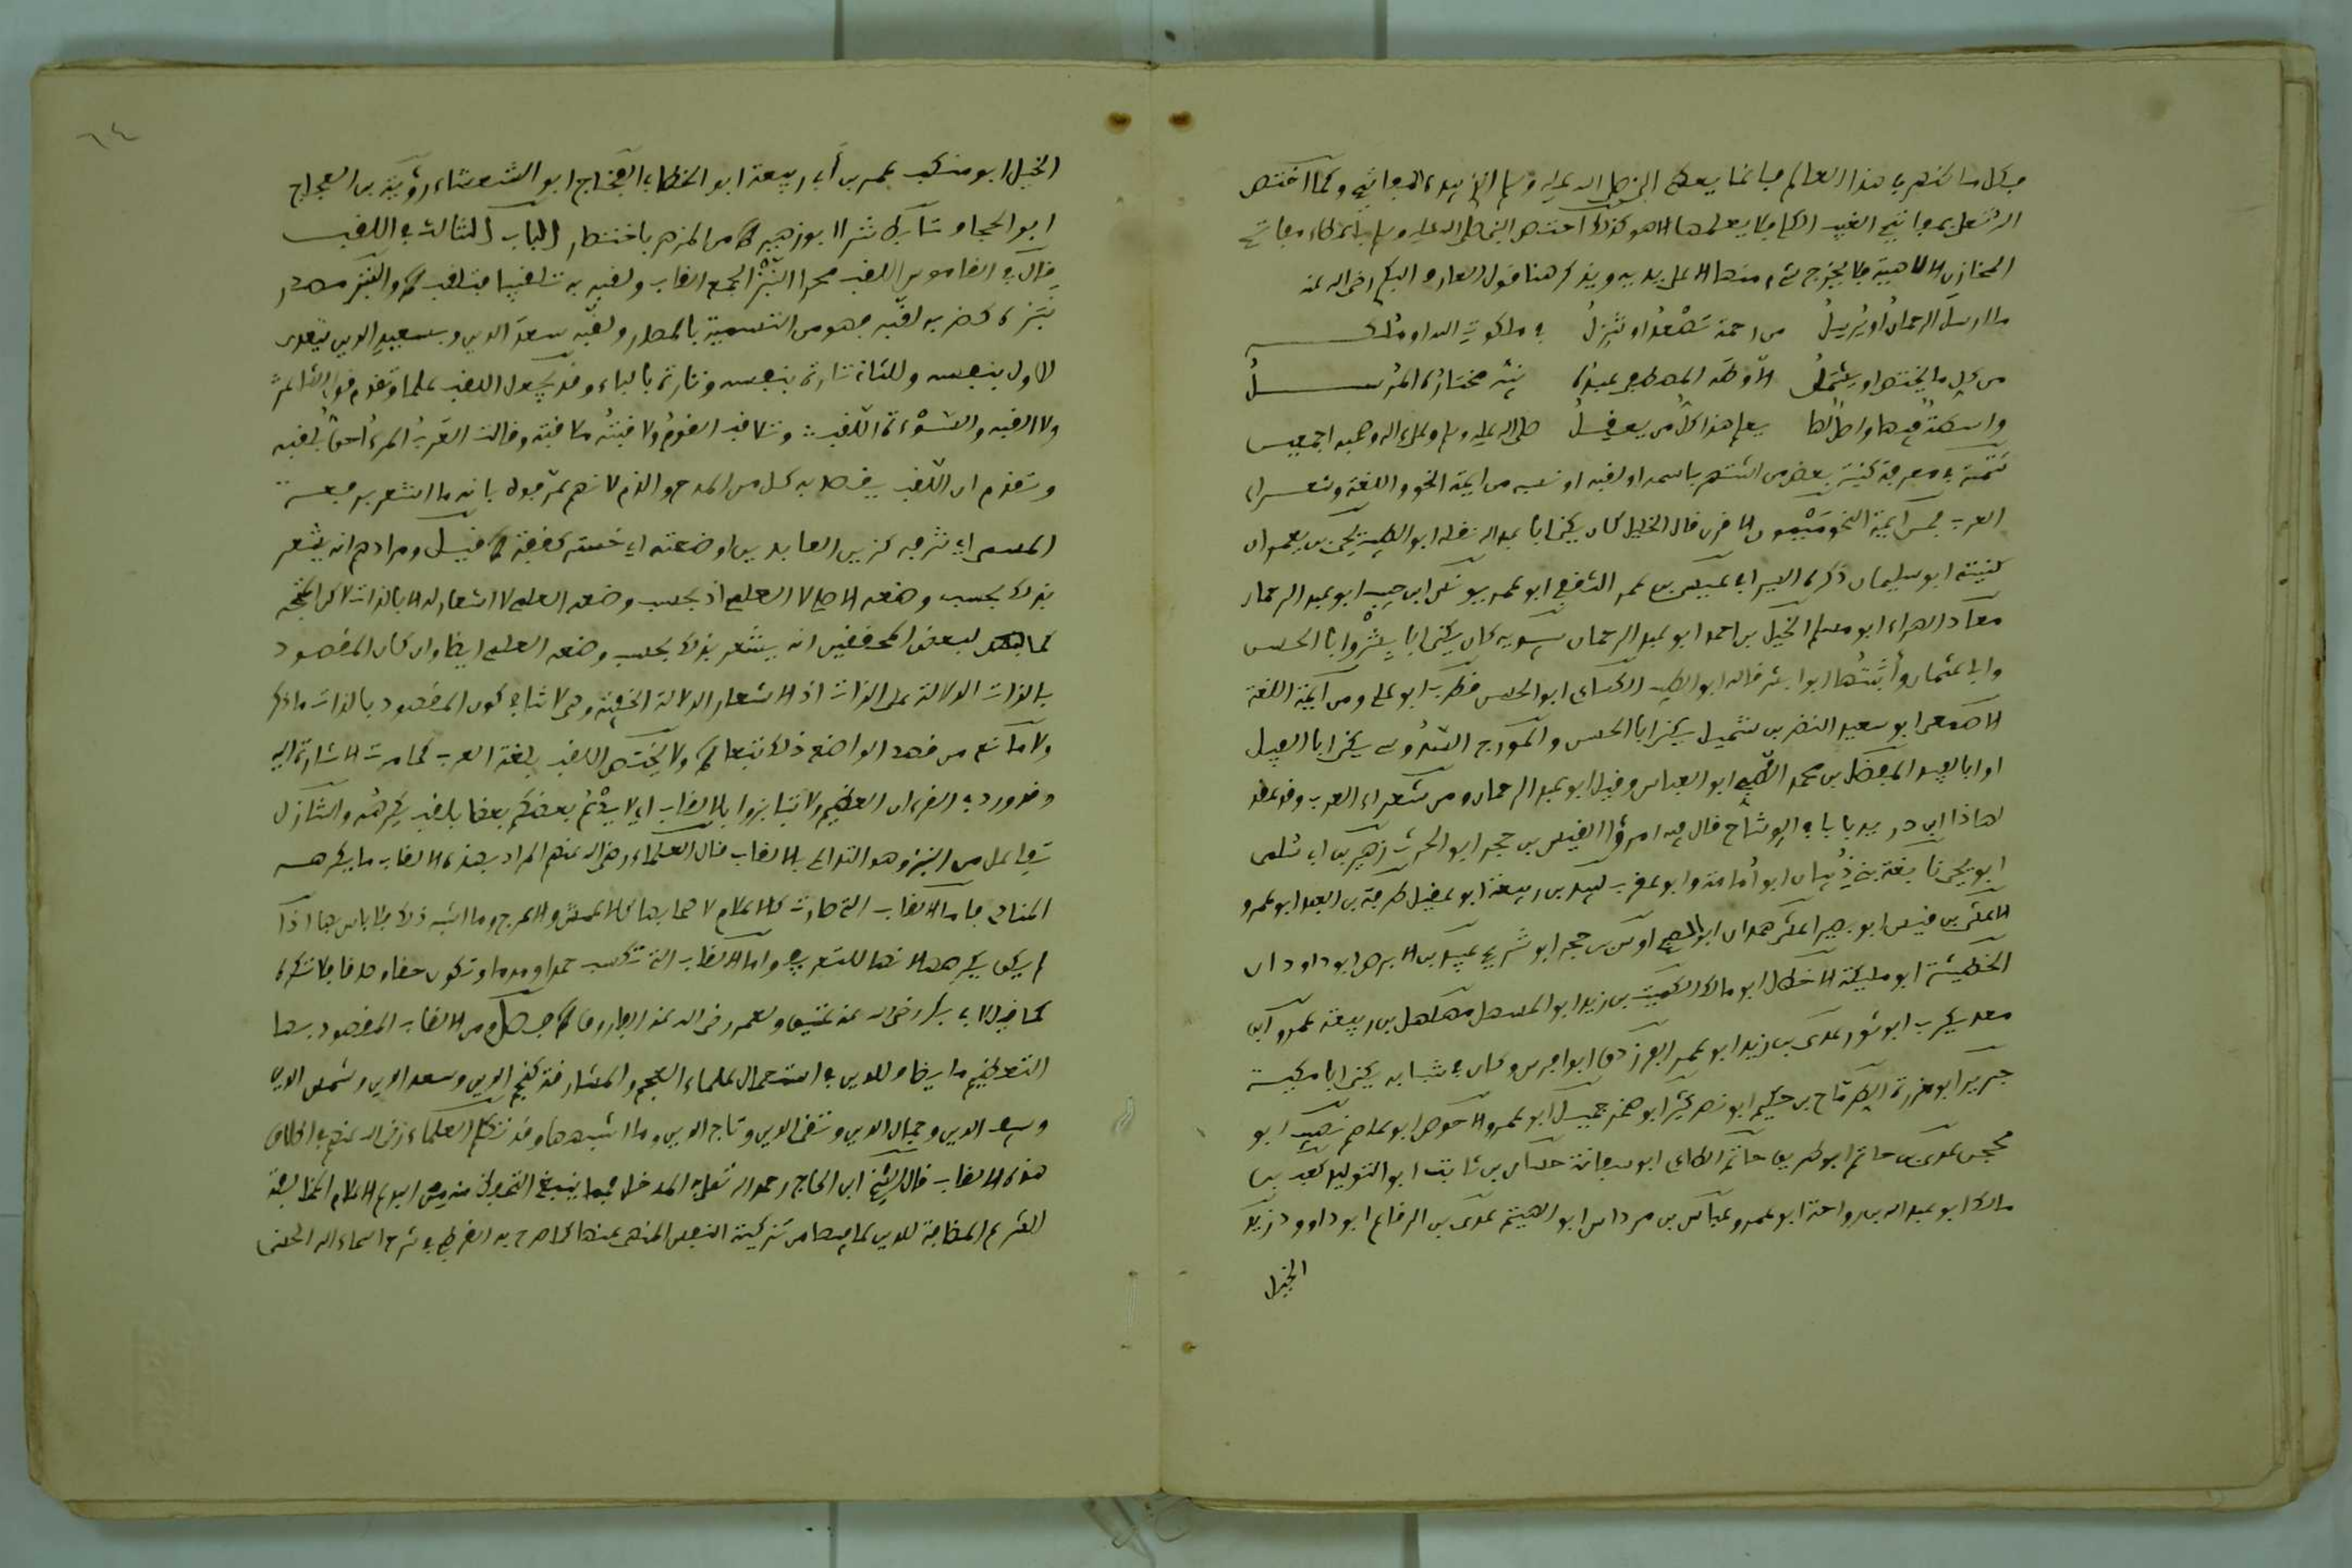 فكل ما ظهر في هذا العالم فإنما يعطيه النبي صلى الله عليه وسلم الذي بيده المفاتيح وكما اختص
الله تعلى بمفاتيح الغيب الكلي فلا يعلمها الا هو كذلك اختص النبي صلى الله عليه وسلم باعطاء مفاتيح
الخزائن الالاهية فلا يخرج شيء منها الا على يديه ويذكر هنا قول العارف البكري رضي الله عنه
ما ارسل الرحمان او يرسل من رحمة تصعد او تنزل في ملكوت الله او ملكه
من كل ما يختص او يشمل الا وطه المصطفى عبده نبيه مختاره المرسل
واسطة فيها واصل لها يعلم هذا كل من يعقل صلى الله عليه وسلم وعلى اله وصحبه اجمعين
تتمة في معرفة كنية بعض من اشتهر باسمه او لقبه او نسبه من ايمة النحو واللغة وشعراء
العرب فمن ايمة النحو ميمون الاقرن قال الخليل كان يكنى ابا عبد الله نقله ابو الطيب يحيى بن يعمر ان
كنيته ابو سليمان ذكره السيرافي عيسى بن عمر الثقفي ابو عمر يونس ابن حبيب ابو عبد الرحمان
معاذ الهراء ابو مسلم الخليل بن احمد ابو عبد الرحمان سيبويه كان يكنى ابا بشر وابا الحسن
وابا عثمان وأثبتها ابو بشر قاله ابو الطيب الكساي ابو الحسن قطرب ابو علي ومن ايمة اللغة
الاصمعي ابو سعيد النضر بن شميل يكنى ابا الحسن والمورج السدوسي يكنى ابا الفيد
او ابا فيد المفضل بن محمد الضبي ابو العباس وقيل ابو عبد الرحمان ومن شعراء العرب وقد عقد
لهاذا ابن دريد بابا في الوشاح قال فيه امرؤا القيس بن حجر ابو الحرث زهير بن ابي سلمى
ابو يحيى نابغة بني ذبيان ابو أمامة وابو عقرب لبيد بن ربيعة ابو عقيل طرفة بن العبد ابو عمرو
الاعشى بن قيس ابو بصير اعشى همدان ابو المصبح اوس بن حجر ابو شريح عبيد بن الابرص ابو دودان
الحطيئة ابو مليكة الاخطل ابو مالك الكميت بن زيد ابو المستهل مهلهل بن ربيعة عمرو ابن
معد يكرب ابو ثور عدي بن زيد ابو عمير الفرزدق ابو فراس وكان في شبابه يكنى ابا مكية
جرير ابو حزرة الطرماح بن حكيم ابو نصر كثير ابو صخر جميل ابو عمرو الاحوص ابو عاصم نصيب ابو
محجن عدي بن حاتم ابو طريف حاتم الطاي ابو سفانة حسان بن ثابت ابو الوليد كعب بن
مالك ابو عبد الله بن رواحة ابو عمرو عباس بن مرداس ابو الهيثم عدي بن الرقاع ابو داوود زيد
الخيل
٦٤
الخيل ابو مكنف عمر بن أبي ربيعة ابو الخطاب العجاج ابو الشعثاء رؤبة بن العجاج
ابو الحجاف تابط شرا ابو زهير من المزهر باختصار الباب الثالث في اللقب
قال في القاموس اللقب محركا النبز الجمع القاب ولقبه به تلقيبا فتلقب والنبز مصدر
نبزه كضربه لقبه فهو من التسمية بالمصدر ولقبه سعد الدين وبسعيد الدين يتعدى
للاول بنفسه وللثاني تارة بنفسه وتارة بالباء وقد يجعل اللقب علما وتقدم قول الشاعر
ولا القبه والسوءة اللقب وتلاقب القوم ولاقبته ملاقبة وقالت العرب المرء احق بلقبه
وتقدم ان اللقب يقصد به كل من المدح والذم لانهم عرفوه بانه ما اشعر برفعة
المسمى اي شرفه كزين العابدين او ضعته اي خسته كقفة فيل ومرادهم انه يشعر
بذلك بحسب وضعه الاصلي لا العلمي اذ بحسب وضعه العلمي لا اشعار له الا بالذات لاكن اتجه
لبعض المحققين انه يشعر بذلك بحسب وضعه العلمي ايضا وان كان المقصود
بالذات الدلالة على الذات اذ الاشعار الدلالة الخفية وهي لا تنافي كون المقصود بالذات ما ذكر
ولا مانع من قصد الواضع ذلك تبعا ولا يختص اللقب بلغة العرب كما مرت الاشارة اليه
وقد ورد في القرءان العظيم ولا تنابزوا بالالقاب اي لا يدع بعضكم بعضا بلقب يكرهه والتنابز
تفاعل من النبز وهو التداعي بالالقاب قال العلماء رضي الله عنهم المراد بهذه الالقاب ما يكرهه
المنادى فاما الالقاب التي صارت كالاعلام لاصحابها كالاعمش والاعرج وما اشبه ذلك فلا باس بها اذا
لم يكن يكرهها لانها للتعريف واما الالقاب التي تكسب حمدا ومدحا وتكون حقا وصدقا فلا تكره
كما قيل لابي بكر رضي الله عنه عتيق ولعمر رضي الله عنه الفاروق فصل ومن الالقاب المقصود بها
التعظيم ما يضاف للدين في استعمال علماء العجم والمشارقة كنجم الدين وسعد الدين وشمس الدين
وسيف الدين وجمال الدين وتقي الدين وتاج الدين وما اشبهها وقد تكلم العلماء رضي الله عنهم في اطلاق
هذه الالقاب قال الشيخ ابن الحاج رحمه الله تعلى في المدخل فيما ينبغي التحرز منه من البدع الاعلام المخالفة
للشرع المضافة للدين لما فيها من تزكية النفس المنهي عنها كما صرح به القرطبي في شرح اسماء الله الحسنى